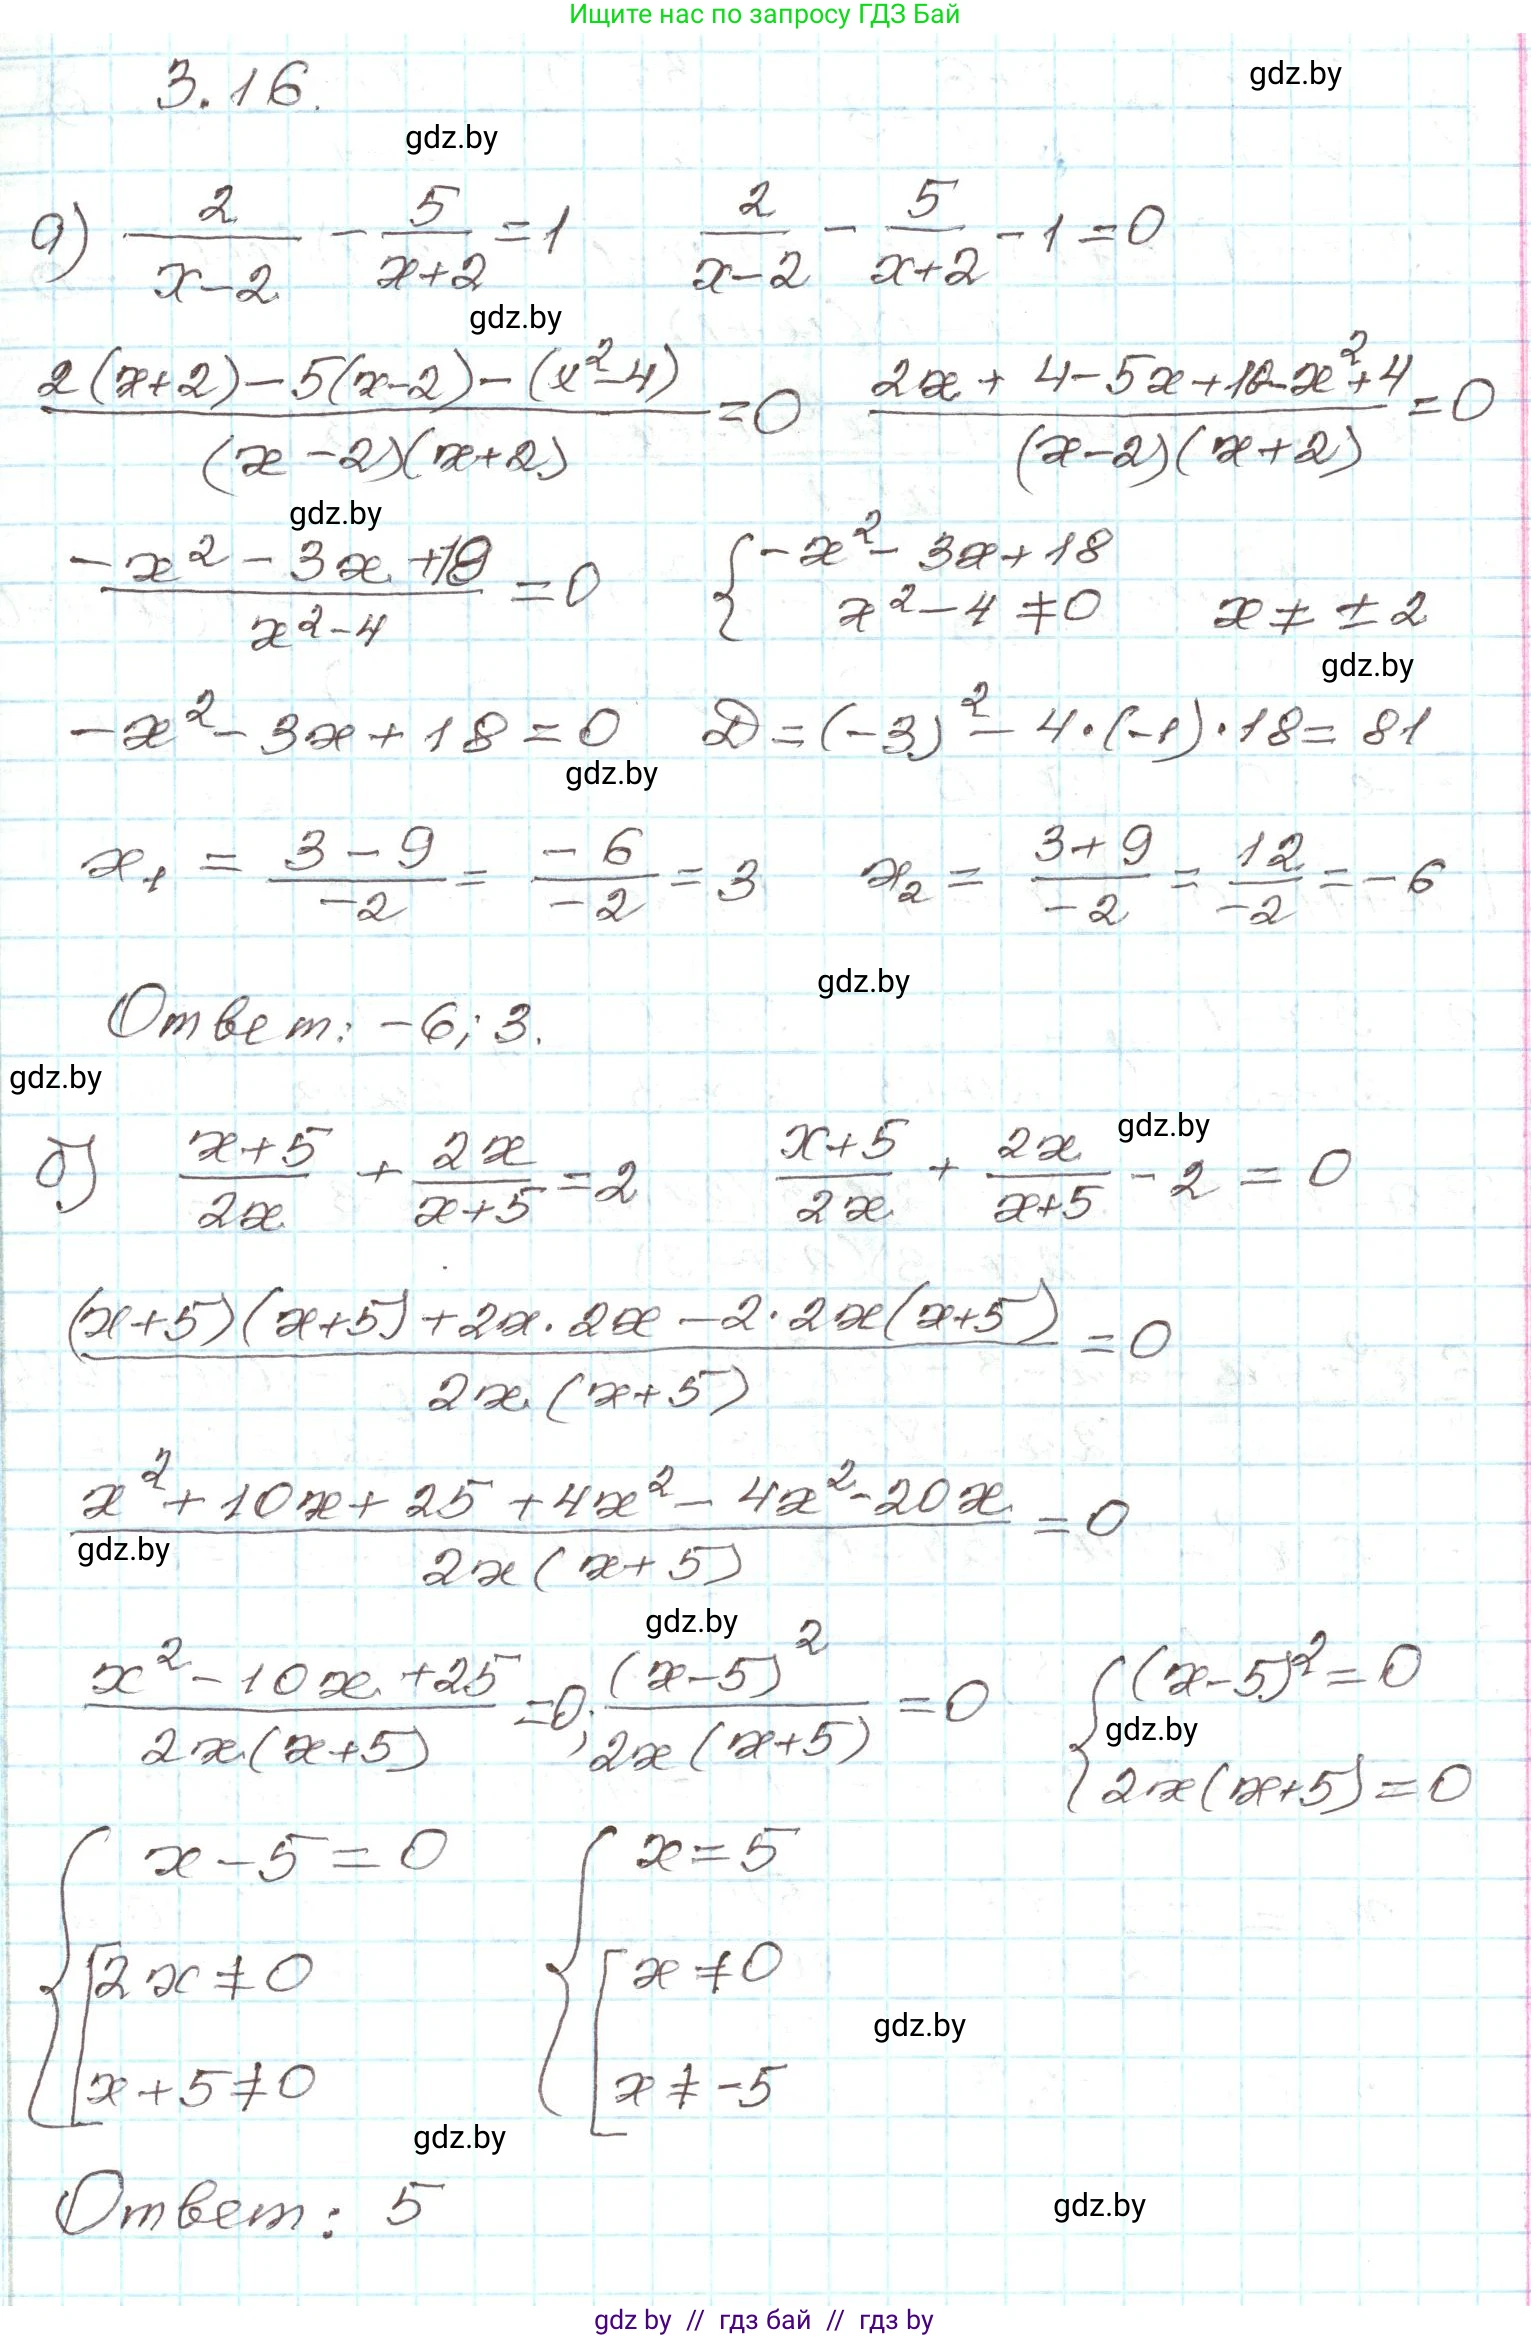 Ищите нас по запросу ГДЗ Бай
3.16.
gdz.by
gdz.by
а) 2/(x-2) - 5/(x+2) = 1    2/(x-2) - 5/(x+2) - 1 = 0
gdz.by
(2(x+2) - 5(x-2) - (x²-4))/((x-2)(x+2)) = 0    (2x + 4 - 5x + 10 - x² + 4)/((x-2)(x+2)) = 0
gdz.by
(-x² - 3x + 18)/(x² - 4) = 0    { -x² - 3x + 18
x² - 4 ≠ 0    x ≠ ± 2
gdz.by
-x² - 3x + 18 = 0    D = (-3)² - 4·(-1)·18 = 81
gdz.by
x₁ = (3-9)/(-2) = (-6)/(-2) = 3    x₂ = (3+9)/(-2) = 12/(-2) = -6
gdz.by
Ответ: -6; 3.
gdz.by
gdz.by
б) (x+5)/(2x) + (2x)/(x+5) = 2    (x+5)/(2x) + (2x)/(x+5) - 2 = 0
((x+5)(x+5) + 2x·2x - 2·2x(x+5))/(2x(x+5)) = 0
(x² + 10x + 25 + 4x² - 4x² - 20x)/(2x(x+5)) = 0
gdz.by
gdz.by
(x² - 10x + 25)/(2x(x+5)) = 0; (x-5)²/(2x(x+5)) = 0    { (x-5)² = 0
gdz.by
2x(x+5) = 0
{ x - 5 = 0    { x = 5
[ 2x ≠ 0    [ x ≠ 0
gdz.by
x + 5 ≠ 0    x ≠ -5
gdz.by
Ответ: 5
gdz.by
gdz by // гдз бай // гдз by